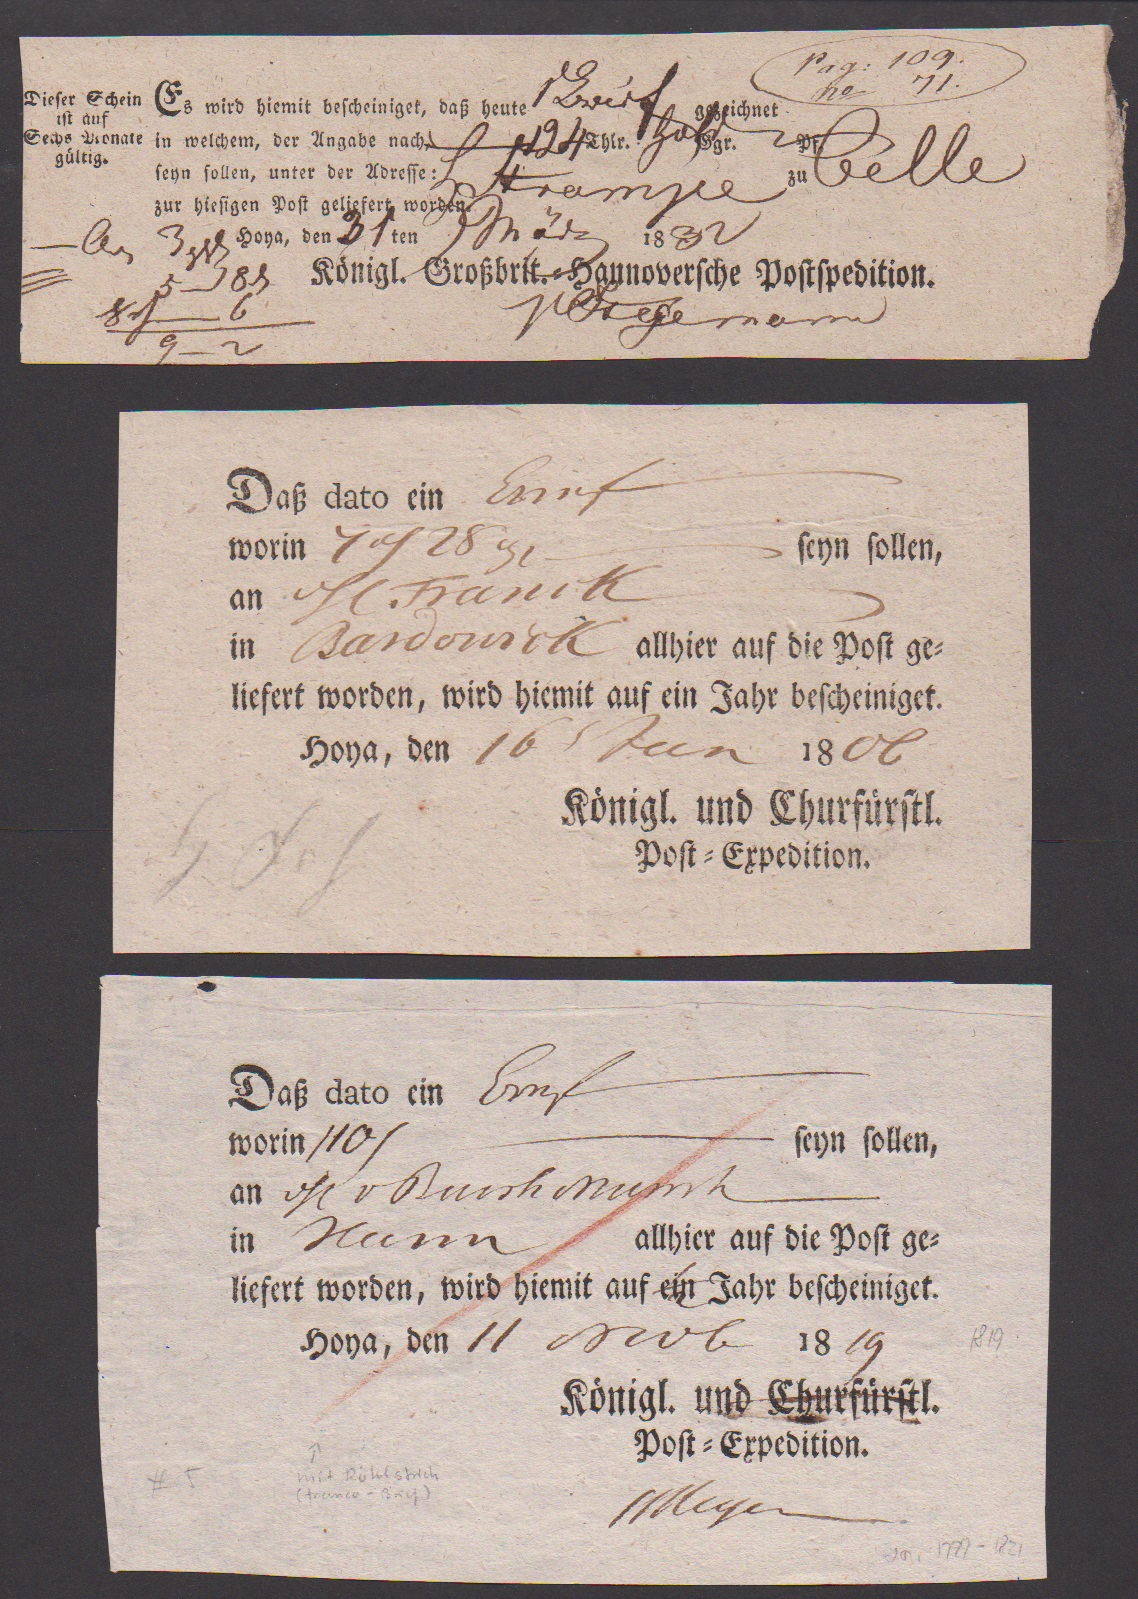 Pag: 109.
no 71.
Dieser Schein
ist auf
Sechs Monate
gültig.
Es wird hiemit bescheiniget, daß heute 1 Brief gezeichnet
in welchem, der Angabe nach, 124 Thlr. Ggr. Pf.
seyn sollen, unter der Adresse: Strampe zu Celle
zur hiesigen Post geliefert worden.
Hoya, den 31 ten März 1832
Königl. Großbrit.-Hannoversche Postspedition.
5 — 8
6
9 — 2
Daß dato ein Brief
worin 28 seyn sollen,
an H. Franck
in Bardowick allhier auf die Post ge-
liefert worden, wird hiemit auf ein Jahr bescheiniget.
Hoya, den 16 Jun 1806
Königl. und Churfürstl.
Post-Expedition.
Daß dato ein Brief
worin seyn sollen,
an H v
in Hann allhier auf die Post ge-
liefert worden, wird hiemit auf ein Jahr bescheiniget.
Hoya, den 11 Novb 1819
1819
Königl. und Churfürstl.
Post-Expedition.
mit Rötelstrich
(franco-Brief)
# 5
HMeyer
1799-1821